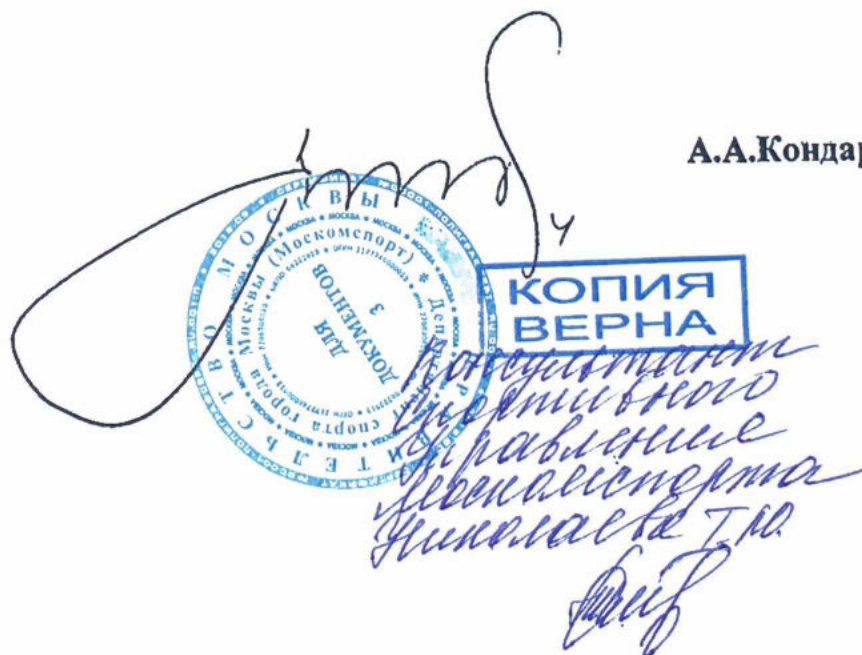 А.А.Кондар
ПРАВИТЕЛЬСТВО МОСКВЫ
Департамент спорта города Москвы (Москомспорт)
МОСКВА
ДЛЯ
ДОКУМЕНТОВ
3
КОПИЯ
ВЕРНА
Консультант
спортивного
управления
Москомспорта
Николаева Т.Ю.